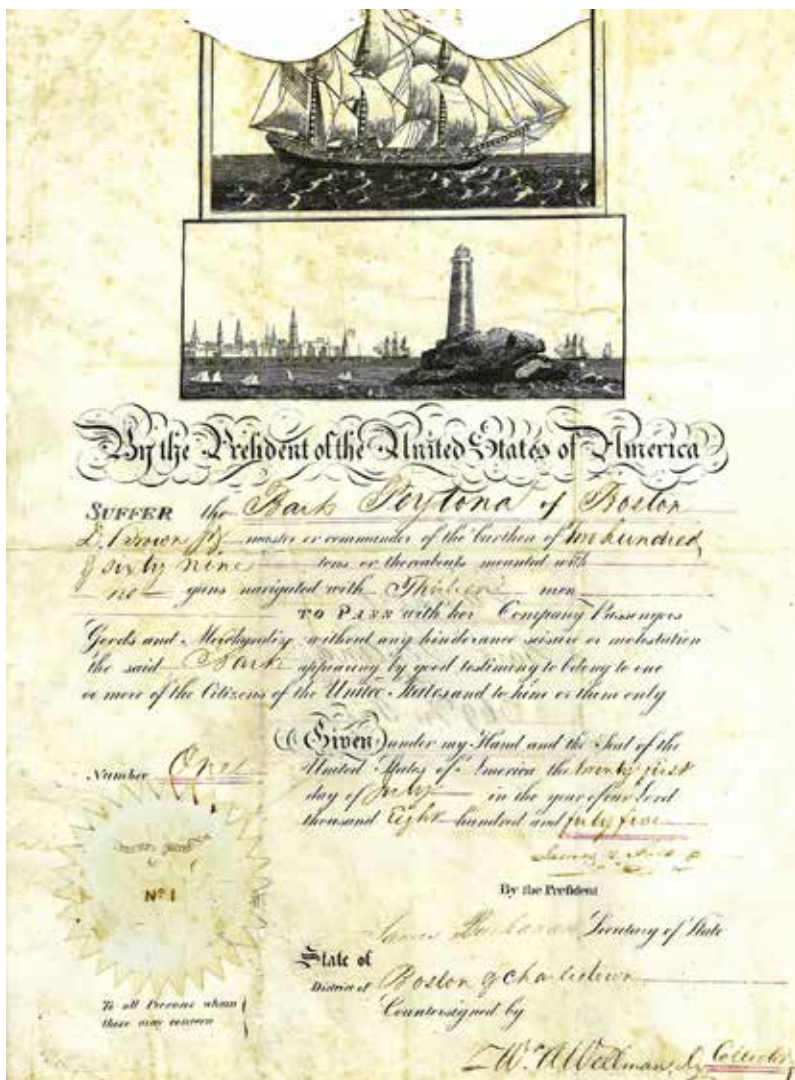 By the President of the United States of America
SUFFER the Bark Peytona of Boston
D. Brown Jr. master or commander of the burthen of Two hundred
& sixty nine tons or thereabouts mounted with
no guns navigated with Thirteen men
TO PASS with her Company Passengers
Goods and Merchandize without any hinderance seisure or molestation
the said Bark appearing by good testimony to belong to one
or more of the Citizens of the United States and to him or them only
Given under my Hand and the Seal of the
Number One
United States of America the twenty first
day of July in the year of our Lord
thousand Eight hundred and forty five
James K. Polk
By the President
James Buchanan Secretary of State
State of
District of Boston & Charlestown
Countersigned by
Collector
No 1
To all Persons whom
these may concern